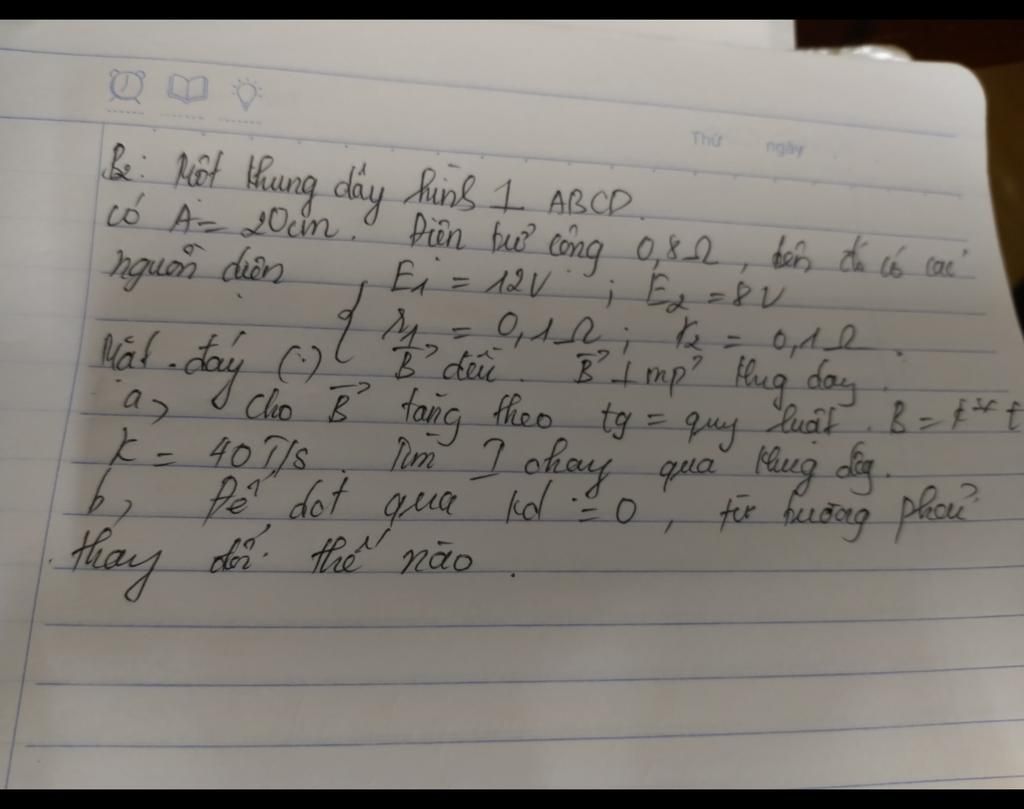 Thứ ngày
B2: Một khung dây hình ⊥ ABCD.
có A = 20cm. Điện trở cộng 0,8Ω, trên đó có các
nguồn điện { E1 = 12V ; E2 = 8V
r1 = 0,1Ω ; r2 = 0,1Ω.
Mặt đáy (.) B→ đều. B→ ⊥ mp' khug day.
a, cho B→ tăng theo tg = quy luật. B = k* t
k = 40T/s. Tìm I chay qua khug dây.
b, Để dđt qua kd = 0, từ trường phải
thay đổi thế nào.